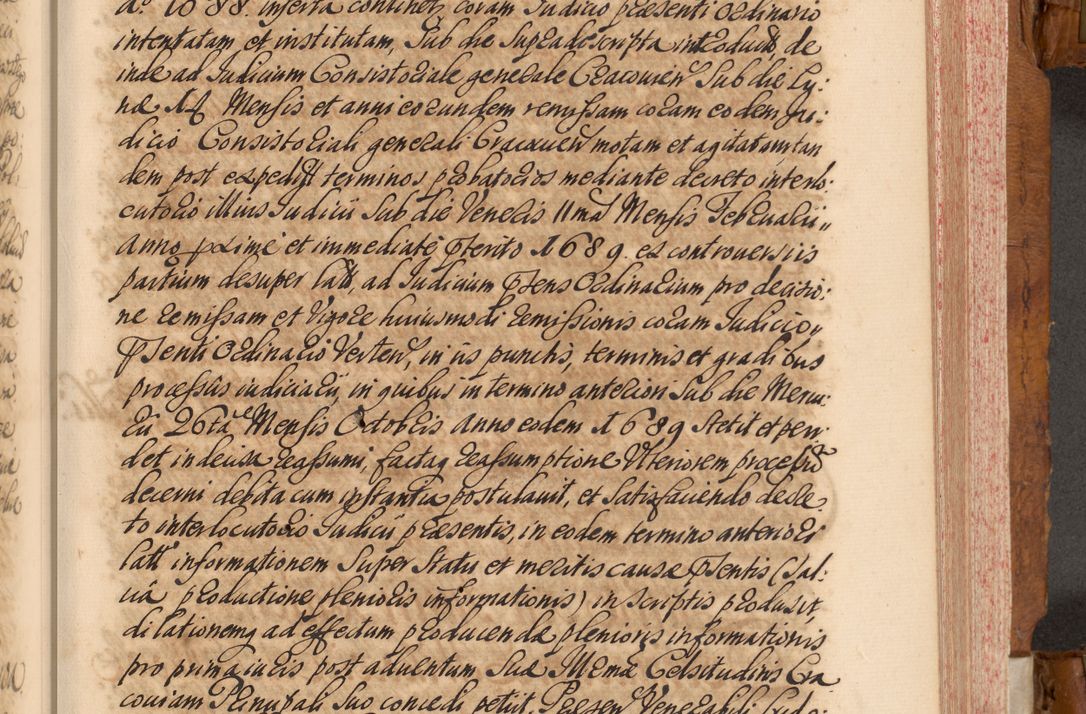 do. 1688. inserta continetr, coram Judicio praesenti ordinario
intentatam et institutam, sub die supradescripta introduct. de
inde ad Judicium Consistoriale generale Cracovien. sub die Lu:
nae 14 Mensis et anni eorundem remissam coram eodem Ju:
dicio Consistoriali generali Cracovien. motam et agitatam tan
dem post expedit. terminos probatorios mediante decreto interlo:
cutorio illius Judicii sub die Veneris 11ma Mensis Februarii,,
anno proxime et immediate pterito 1689. ex controversiis
partium desuper latt., ad Judicium psens Ordinarium pro decisio:
ne remissam et vigore huiusmodi remissionis coram Judicio,,
psenti Ordinario verten., in iis punctis, terminis et gradibus
processus iudiciarii, in quibus in termino anteriori sub die Mercu:
rii 26ta Mensis Octobris anno eodem 1689 stetit et pen:
det indecisa reassumi, factaq reassumptione ulteriorem processum
decerni debita cum instantia postulavit, et satisfaciendo decre:
to interlocutorio Judicii praesentis, in eodem termino anteriori
latt. informationem super statu et meritis causae psentis (sal:
va productione plenioris informationis) in scriptis produxit,
dilationemq ad effectum producendae plenioris informationis
pro prima iuris post adventum suae Illmae Celsitudinis Cra
coviam Principali suo concedi petiit. Praesen. Venerabili